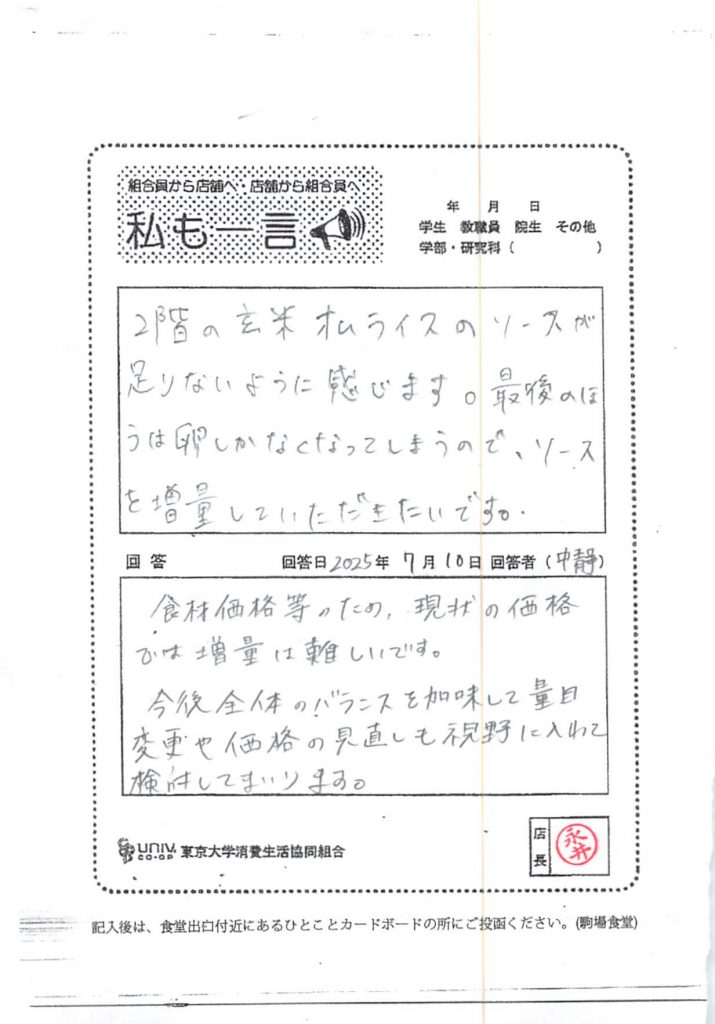 組合員から店舗へ・店舗から組合員へ
私も一言
年 月 日
学生 教職員 院生 その他
学部・研究科( )
2階の玄米オムライスのソースが
足りないように感じます。最後のほ
うは卵しかなくなってしまうので、ソース
を増量していただきたいです。
回答 回答日2025年 7月10日 回答者(中静)
食材価格等のため、現状の価格
では増量は難しいです。
今後全体のバランスを加味して量目
変更や価格の見直しも視野に入れて
検討してまいります。
UNIV. CO-OP 東京大学消費生活協同組合
店長
永井
記入後は、食堂出口付近にあるひとことカードボードの所にご投函ください。(駒場食堂)